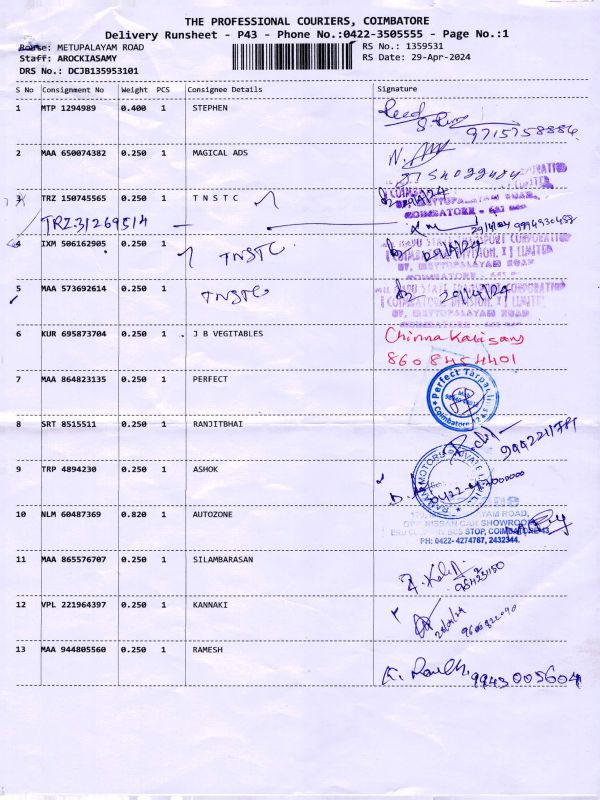 THE PROFESSIONAL COURIERS, COIMBATORE
Delivery Runsheet - P43 - Phone No.:0422-3505555 - Page No.:1
Route: METUPALAYAM ROAD RS No.: 1359531
Staff: AROCKIASAMY RS Date: 29-Apr-2024
DRS No.: DCJB135953101
S No Consignment No Weight PCS Consignee Details Signature
1 MTP 1294989 0.400 1 STEPHEN
9715758884
2 MAA 650074382 0.250 1 MAGICAL ADS
3 TRZ 150745565 0.250 1 T N S T C
TRZ 31269514
29/4/24 9994930488
4 IXM 506162905 0.250 1 TNSTC
5 MAA 573692614 0.250 1 TNSTC 29/4/24
6 KUR 695873704 0.250 1 J B VEGITABLES Chinna Kalisamy
8608454401
7 MAA 864823135 0.250 1 PERFECT
Perfect Tarpaulin
Coimbatore
8 SRT 8515511 0.250 1 RANJITBHAI
9 TRP 4894230 0.250 1 ASHOK
MOTORS PRIVATE
10 NLM 60487369 0.820 1 AUTOZONE
ROAD,
OPP. NISSAN CAR SHOWROOM
BUS STOP, COIMBATORE-43
PH: 0422-4274767, 2432344.
11 MAA 865576707 0.250 1 SILAMBARASAN
12 VPL 221964397 0.250 1 KANNAKI
13 MAA 944805560 0.250 1 RAMESH
9943005604